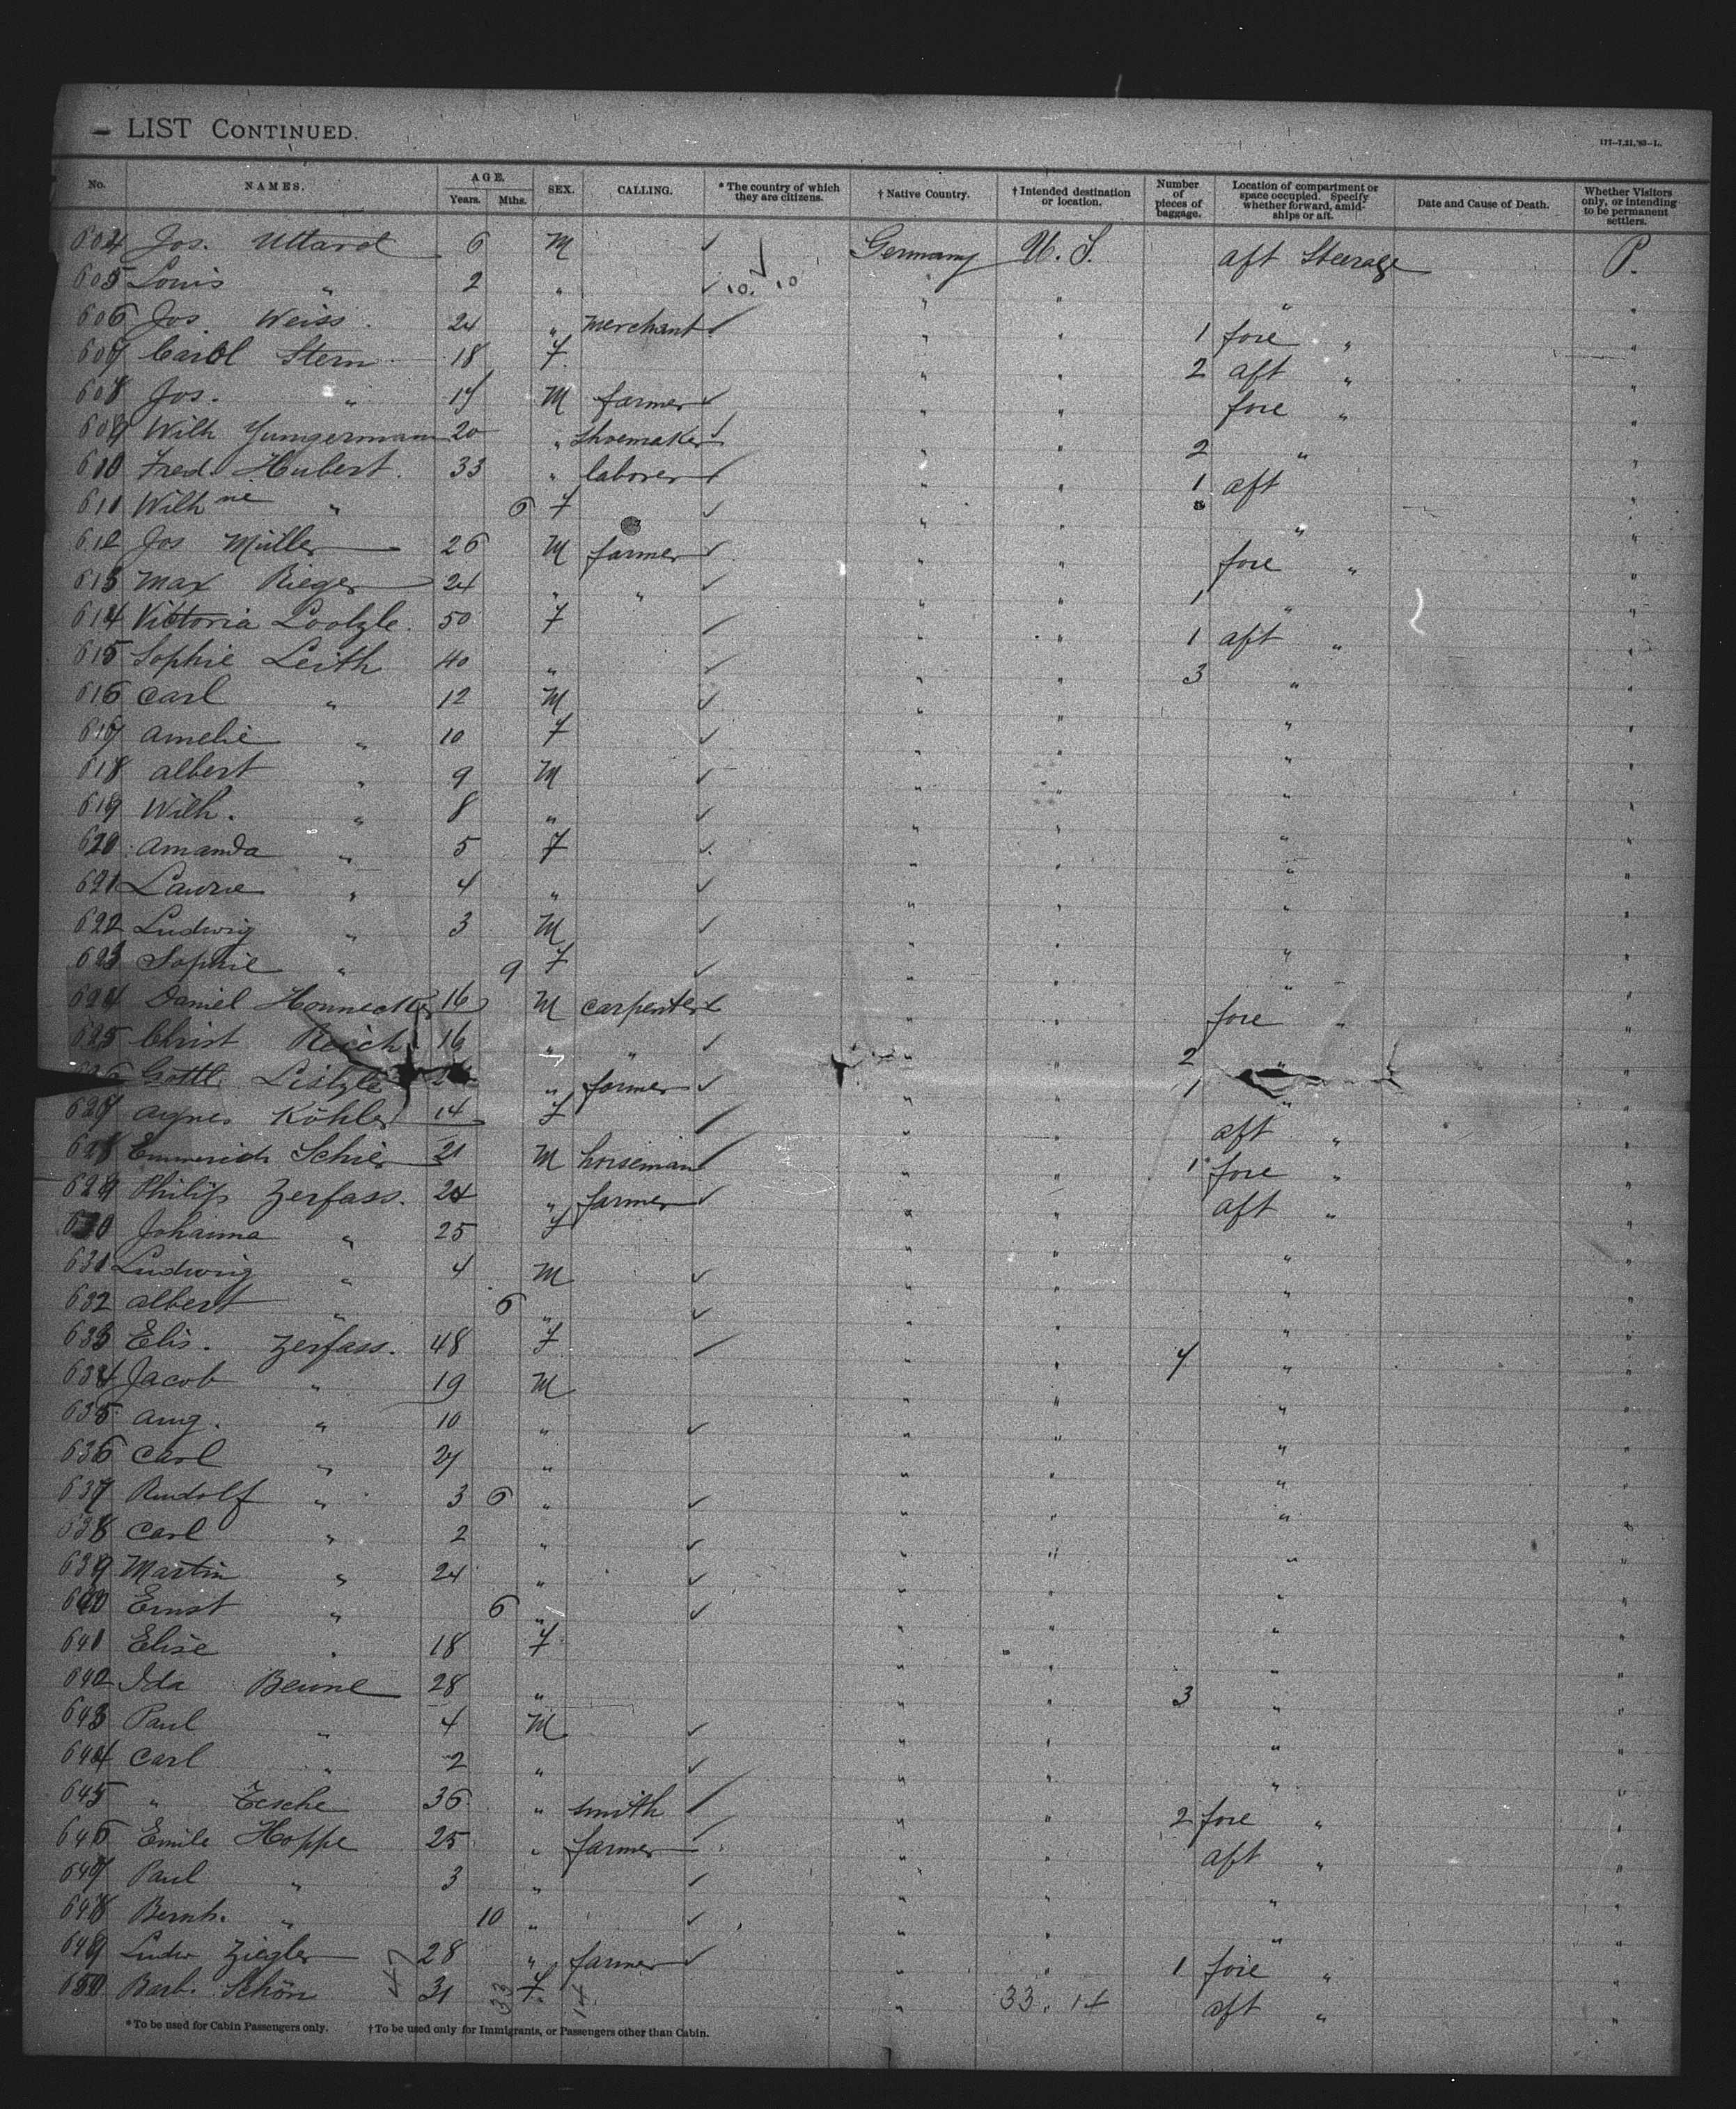 LIST CONTINUED.
177—7,21,'93—L.
No. NAMES. AGE. Years. Mths. SEX. CALLING. * The country of which they are citizens. † Native Country. † Intended destination or location. Number of pieces of baggage. Location of compartment or space occupied. Specify whether forward, amidships or aft. Date and Cause of Death. Whether Visitors only, or intending to be permanent settlers.
604 Jos. Uttard 6 M ✓ Germany U. S. aft Steerage P.
605 Louis " 2 " ✓ " " " "
606 Jos. Weiss. 24 " merchant ✓ " " 1 fore " "
607 Carol Stern 18 F. " " 2 aft " "
608 Jos. " 17 M farmer ✓ " " fore " "
609 Wilh Jungermann 20 " shoemaker ✓ " " 2 " "
610 Fred. Hubert. 33 " laborer ✓ " " 1 aft "
611 Wilhne " 6 F ✓ " " " "
612 Jos Müller 26 M farmer ✓ " " fore " "
613 Max Rieger 24 " " ✓ " " 1 " "
614 Victoria 50 F ✓ " " 1 aft " "
615 Sophie Leith 40 " ✓ " " 3 " "
616 Carl " 12 M ✓ " " " "
617 Amelie " 10 F ✓ " " " "
618 Albert " 9 M ✓ " " " "
619 Wilh. " 8 " ✓ " " " "
620 Amanda " 5 F ✓ " " " "
621 Laura " 4 " ✓ " " " "
622 Ludwig " 3 M ✓ " " " "
623 Sophie " 9 F ✓ " " " "
624 Daniel Honnecker 16 M carpenter ✓ " " fore " "
625 Christ Reich 16 " " ✓ " " 2 " "
626 Gottl. " farmer ✓ " " 1 " "
627 Agnes Köhler 14 F ✓ " " aft " "
628 Emmerich Schier 21 M horseman ✓ " " 1 fore " "
629 Philip Zerfass. 24 " farmer ✓ " " aft " "
630 Johanna " 25 F " " " "
631 Ludwig " 4 M ✓ " " " "
632 Albert " 6 " ✓ " " " "
633 Elis. Zerfass. 48 F ✓ " " 7 " "
634 Jacob " 19 M " " " "
635 Aug. " 10 " ✓ " " " "
636 Carl " 27 " " " " "
637 Rudolf " 3 6 " ✓ " " " "
638 Carl " 2 " ✓ " " " "
639 Martin " 24 " ✓ " " " "
640 Ernst " 6 " ✓ " " " "
641 Elise " 18 F " " " "
642 Ida 28 " " " 3 " "
643 Paul " 4 M ✓ " " " "
644 Carl " 2 " ✓ " " " "
645 " Tesche 36 " smith ✓ " " 2 fore " "
646 Emile Hoppe 25 " farmer ✓ " " aft " "
647 Paul " 3 " ✓ " " " "
648 Bernh. " 10 " ✓ " " " "
649 Ludw Ziegler 28 " farmer ✓ " " 1 fore " "
650 Barb. Schön 31 F. " 33. 14 aft " "
47 33 14
*To be used for Cabin Passengers only. †To be used only for Immigrants, or Passengers other than Cabin.